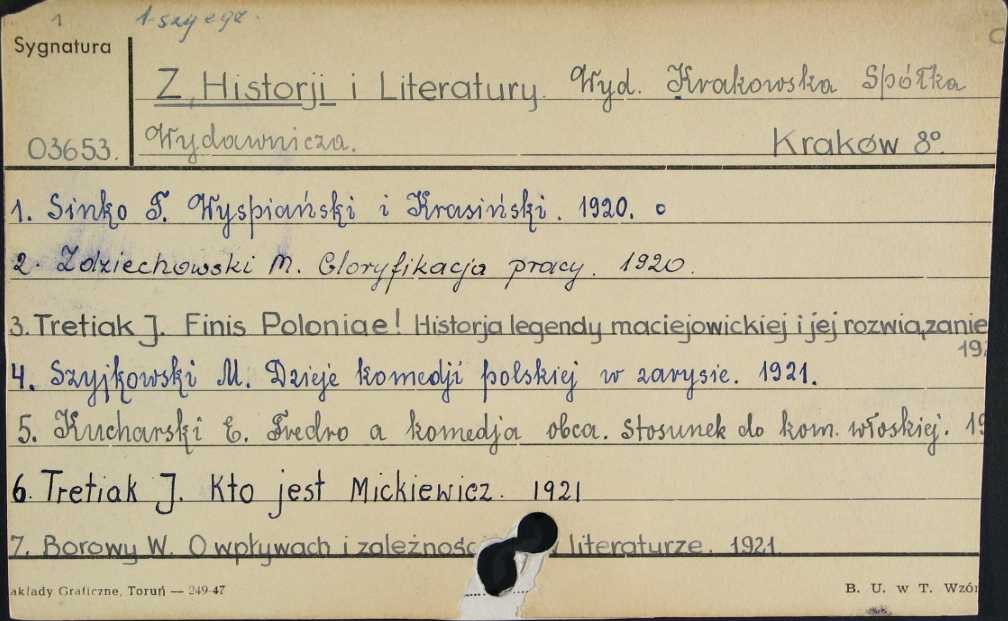 1 1-szy egz.
Sygnatura
Z Historji i Literatury. Wyd. Krakowska Spółka
03653. Wydawnicza. Kraków 8º.
1. Sinko T. Wyspiański i Krasiński. 1920.
2. Zdziechowski M. Gloryfikacja pracy. 1920.
3. Tretiak J. Finis Poloniae! Historja legendy maciejowickiej i jej rozwiązanie
192
4. Szyjkowski M. Dzieje komedji polskiej w zarysie. 1921.
5. Kucharski E. Fredro a komedja obca. Stosunek do kom. włoskiej. 19
6. Tretiak J. Kto jest Mickiewicz. 1921
7. Borowy W. O wpływach i zależnośc literaturze. 1921
akłady Graficzne, Toruń — 249-47 B. U. w T. Wzór